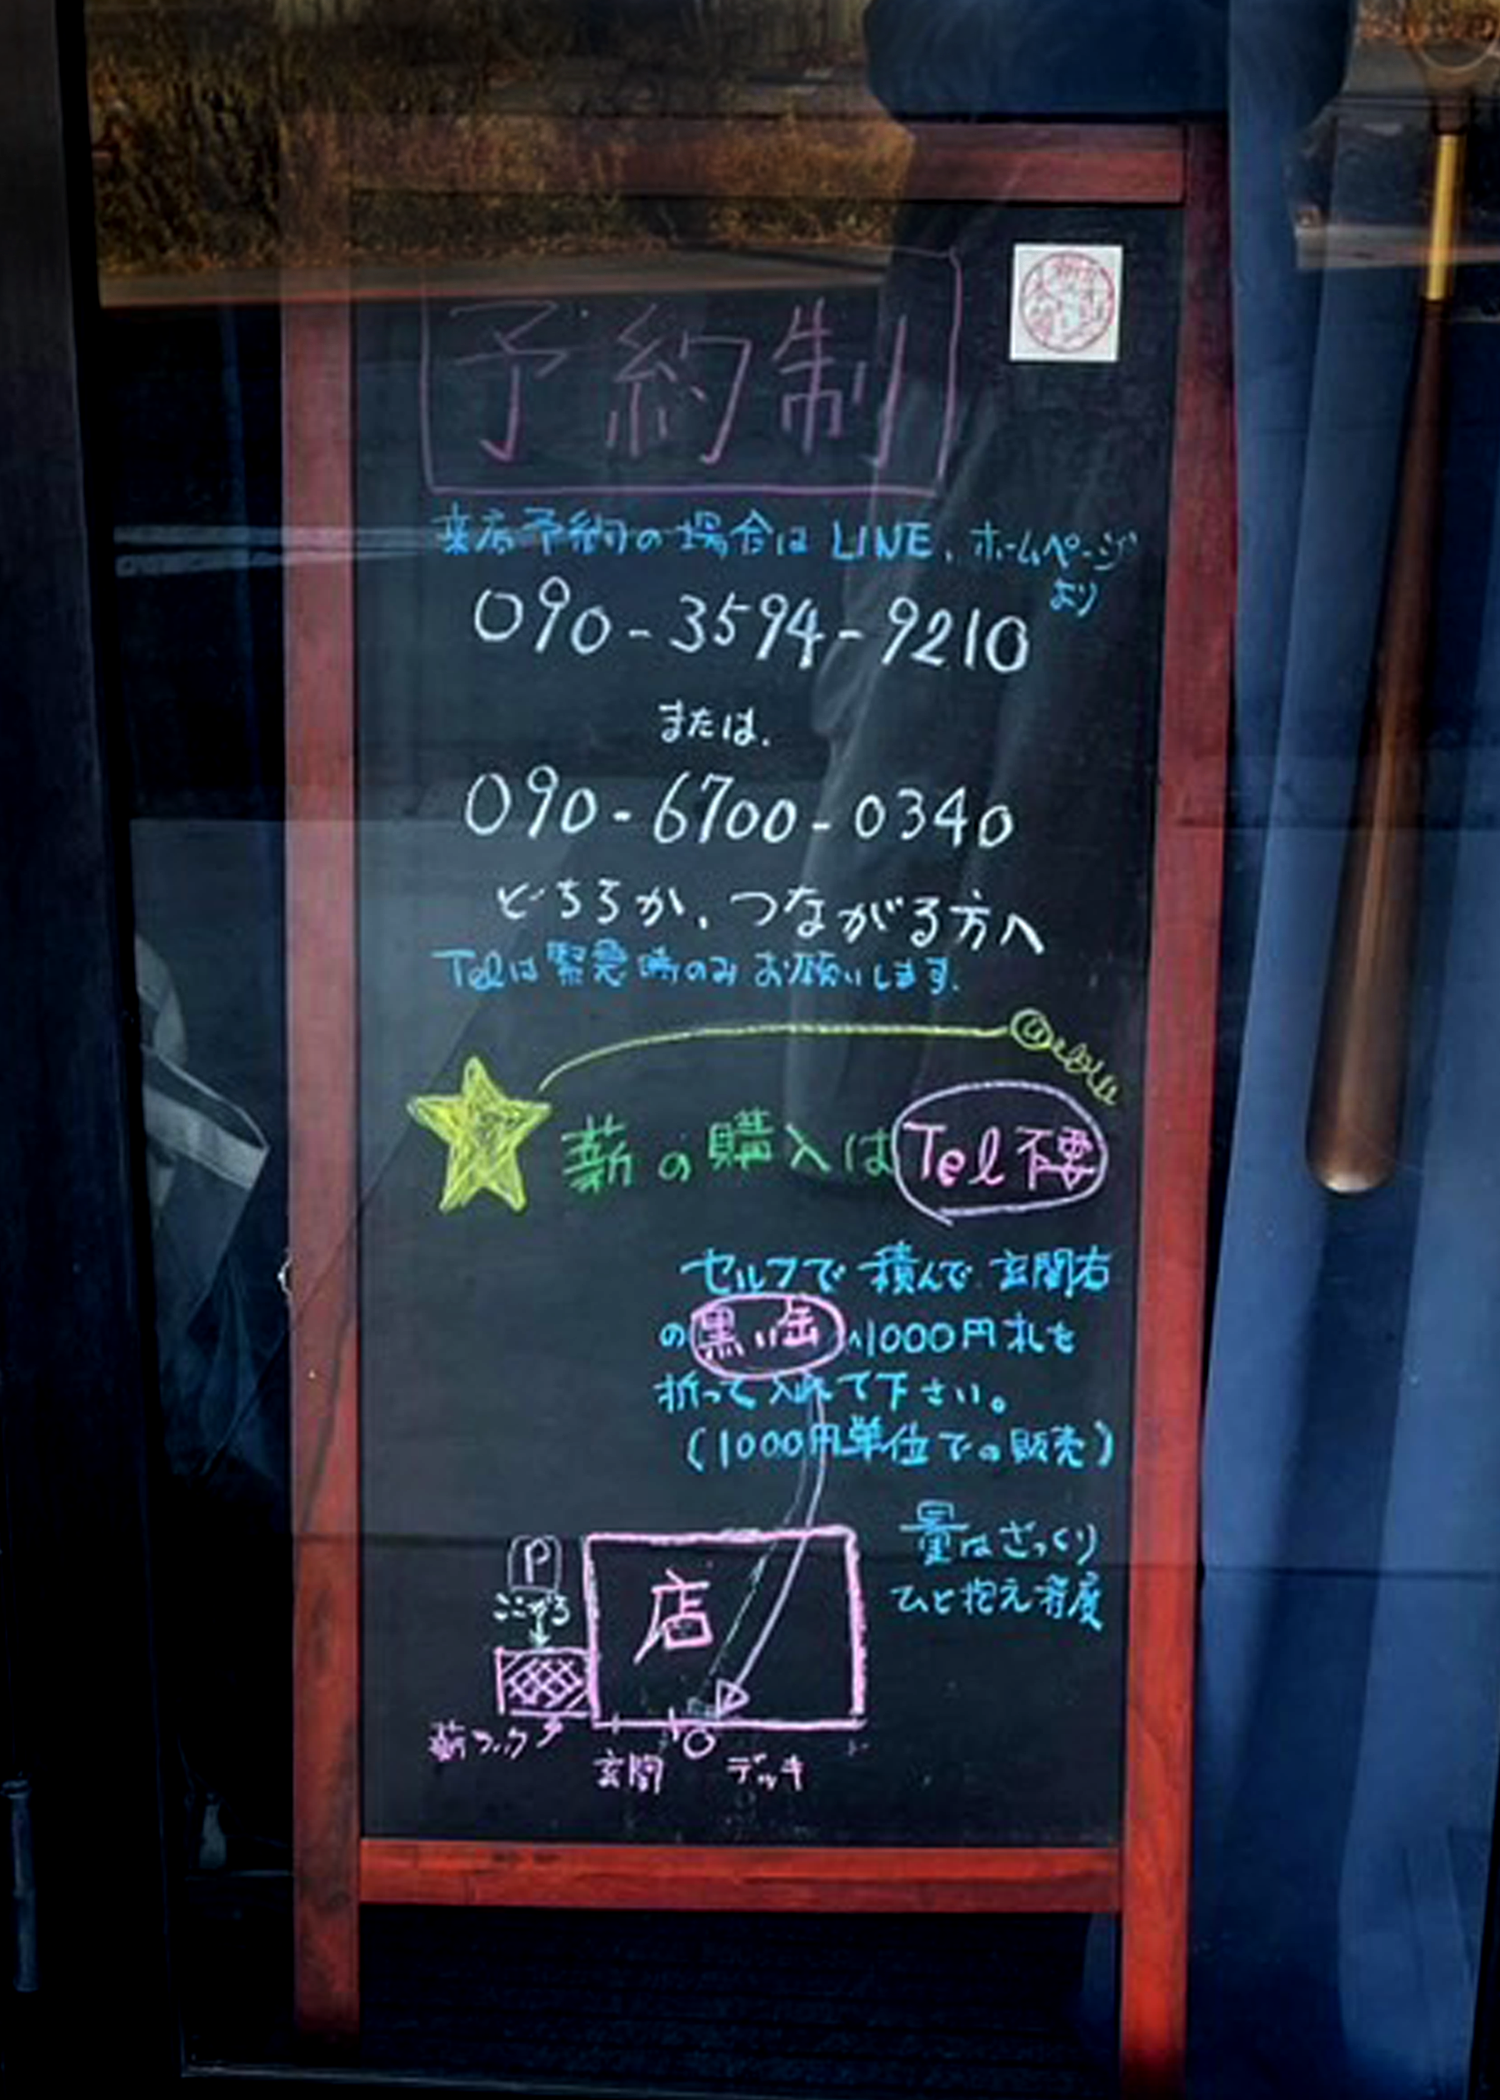 予約制
来店予約の場合は LINE、ホームページ
より
090-3594-9210
または、
090-6700-0340
どちらか、つながる方へ
Telは緊急時のみお願いします。
薪の購入は Tel不要
セルフで積んで玄関右
の黒い缶へ1000円札を
折って入れて下さい。
(1000円単位での販売)
量はざっくり
ひと抱え程度
P
店
薪
玄関
デッキ